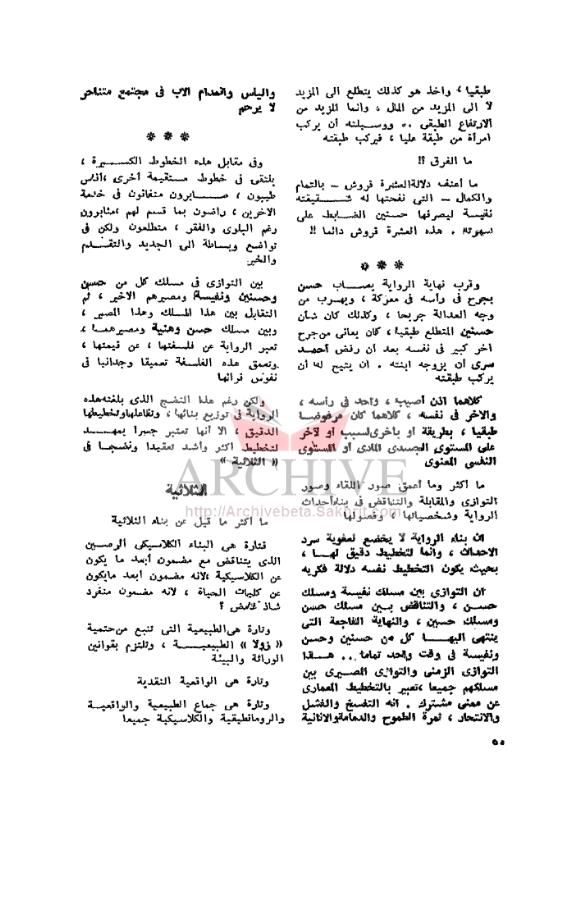 طبقيا ، واخذ هو كذلك يتطلع الى المزيد
لا الى المزيد من المال ، وانما المزيد من
الارتفاع الطبقى .. ووسيلته أن يركب
امرأة من طبقة عليا ، فيركب طبقته
ما الفرق ؟!
ما أعنف دلالة العشرة قروش – بالتمام
والكمال – التى نفحتها له شقيقته
نفيسة ليصرفها حسنين الضابط على
سهوته . هذه العشرة قروش دائما !!
* * *
وقرب نهاية الرواية يصاب حسن
بجرح فى رأسه فى معركة ، ويهرب من
وجه العدالة جريحا ، وكذلك كان شأن
حسنين المتطلع طبقيا ، كان يعانى من جرح
آخر كبير فى نفسه بعد أن رفض أحمد
سرى أن يزوجه ابنته . ان يتيح له أن
يركب طبقته
كلاهما اذن أصيب ، واحد فى رأسه ،
والآخر فى نفسه ، كلاهما كان مرفوضا
طبقيا ، بطريقة أو بأخرى لسبب أو لآخر
على المستوى الجسدى المادى أو المستوى
النفسى المعنوى
ما أكثر وما أعمق صور اللقاء وصور
التوازى والمقابلة والتناقض فى بناء أحداث
الرواية وشخصياتها ، وفصولها
ان بناء الرواية لا يخضع لعفوية سرد
الاحداث ، وانما لتخطيط دقيق لها ،
بحيث يكون التخطيط نفسه دلالة فكريه
ان التوازى بين مسلك نفيسة ومسلك
حسن ، والتناقض بين مسلك حسن
ومسلك حسين ، والنهاية الفاجعة التى
ينتهى اليها كل من حسنين وحسن
ونفيسة فى وقت واحد تماما ... هذا
التوازى الزمنى والتوازى المصيرى بين
مسلكهم جميعا ، تعبير بالتخطيط المعمارى
عن معنى مشترك . انه التفسخ والفشل
والانتحار ، ثمرة الطموح والدمامة والانانية
والياس وانعدام الاب فى مجتمع متناحر
لا يرحم
* * *
وفى مقابل هذه الخطوط الكسيرة ،
يلتقى فى خطوط مستقيمة أخرى ، أناس
طيبون ، صابرون متفانون فى خدمة
الآخرين ، راضون بما قسم لهم ، مثابرون
رغم البلوى والفقر ، متطلعون ولكن فى
تواضع وبساطة الى الجديد والتقدم
والخير
بين التوازى فى مسلك كل من حسن
وحسنين ونفيسة ومصيرهم الاخير ، ثم
التقابل بين هذا المسلك وهذا المصير ،
وبين مسلك حسن وهنية ومصيرهما ،
تعبر الرواية عن فلسفتها ، عن قيمتها ،
وتعمق هذه الفلسفة تعميقا وجدانيا فى
نفوس قرائها
ولكن رغم هذا النضج الذى بلغته هذه
الرواية فى توزيع بنائها ، وتفاعلها وتخطيطها
الدقيق ، الا أنها تعتبر جسرا يمهد
لتخطيط أكثر وأشد تعقيدا ونضجا فى
« الثلاثية »
الثلاثية
ما أكثر ما قيل عن بناء الثلاثية
فتارة هى البناء الكلاسيكى الرصين
الذى يتناقض مع مضمون أبعد ما يكون
عن الكلاسيكية لانه مضمون أبعد مايكون
عن كليات الحياة ، لانه مضمون متفرد
شاذ غامض ؟
وتارة هى الطبيعية التى تنبع من حتمية
« زولا » الطبيعية ، وتلتزم بقوانين
الوراثة والبيئة
وتارة هى الواقعية النقدية
وتارة هى جماع الطبيعية والواقعية
والرومانطيقية والكلاسيكية جميعا
٥٥
ARCHIVE
http://Archivebeta.Sakhrit.com